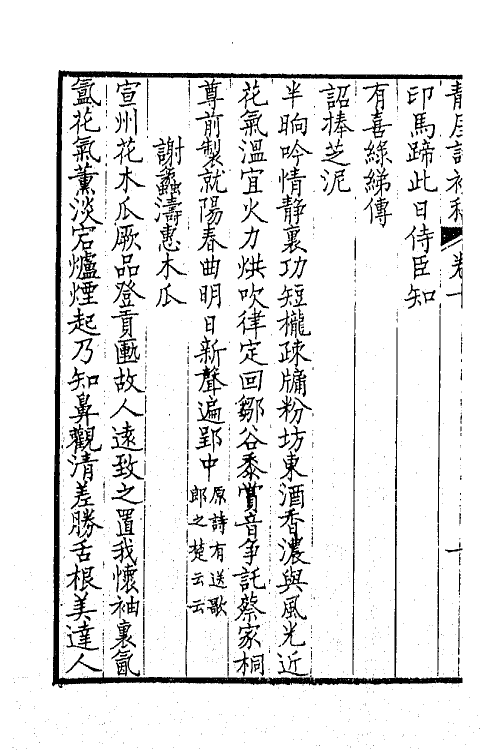 卷十
印馬蹄此日侍臣知
有喜綠綈傳
詔捧芝泥
半晌吟情静裏功短櫳疎牖粉坊東酒香濃與風光近
花氣溫宜火力烘吹律定回鄒谷黍賞音爭託蔡家桐
尊前製就陽春曲明日新聲遍郢中原詩有送歌
郎之楚云云
謝蠡濤惠木瓜
宣州花木瓜厥品登貢匭故人遠致之置我懷袖裏氤
氳花氣薰淡宕爐煙起乃知鼻觀清差勝舌根美達人